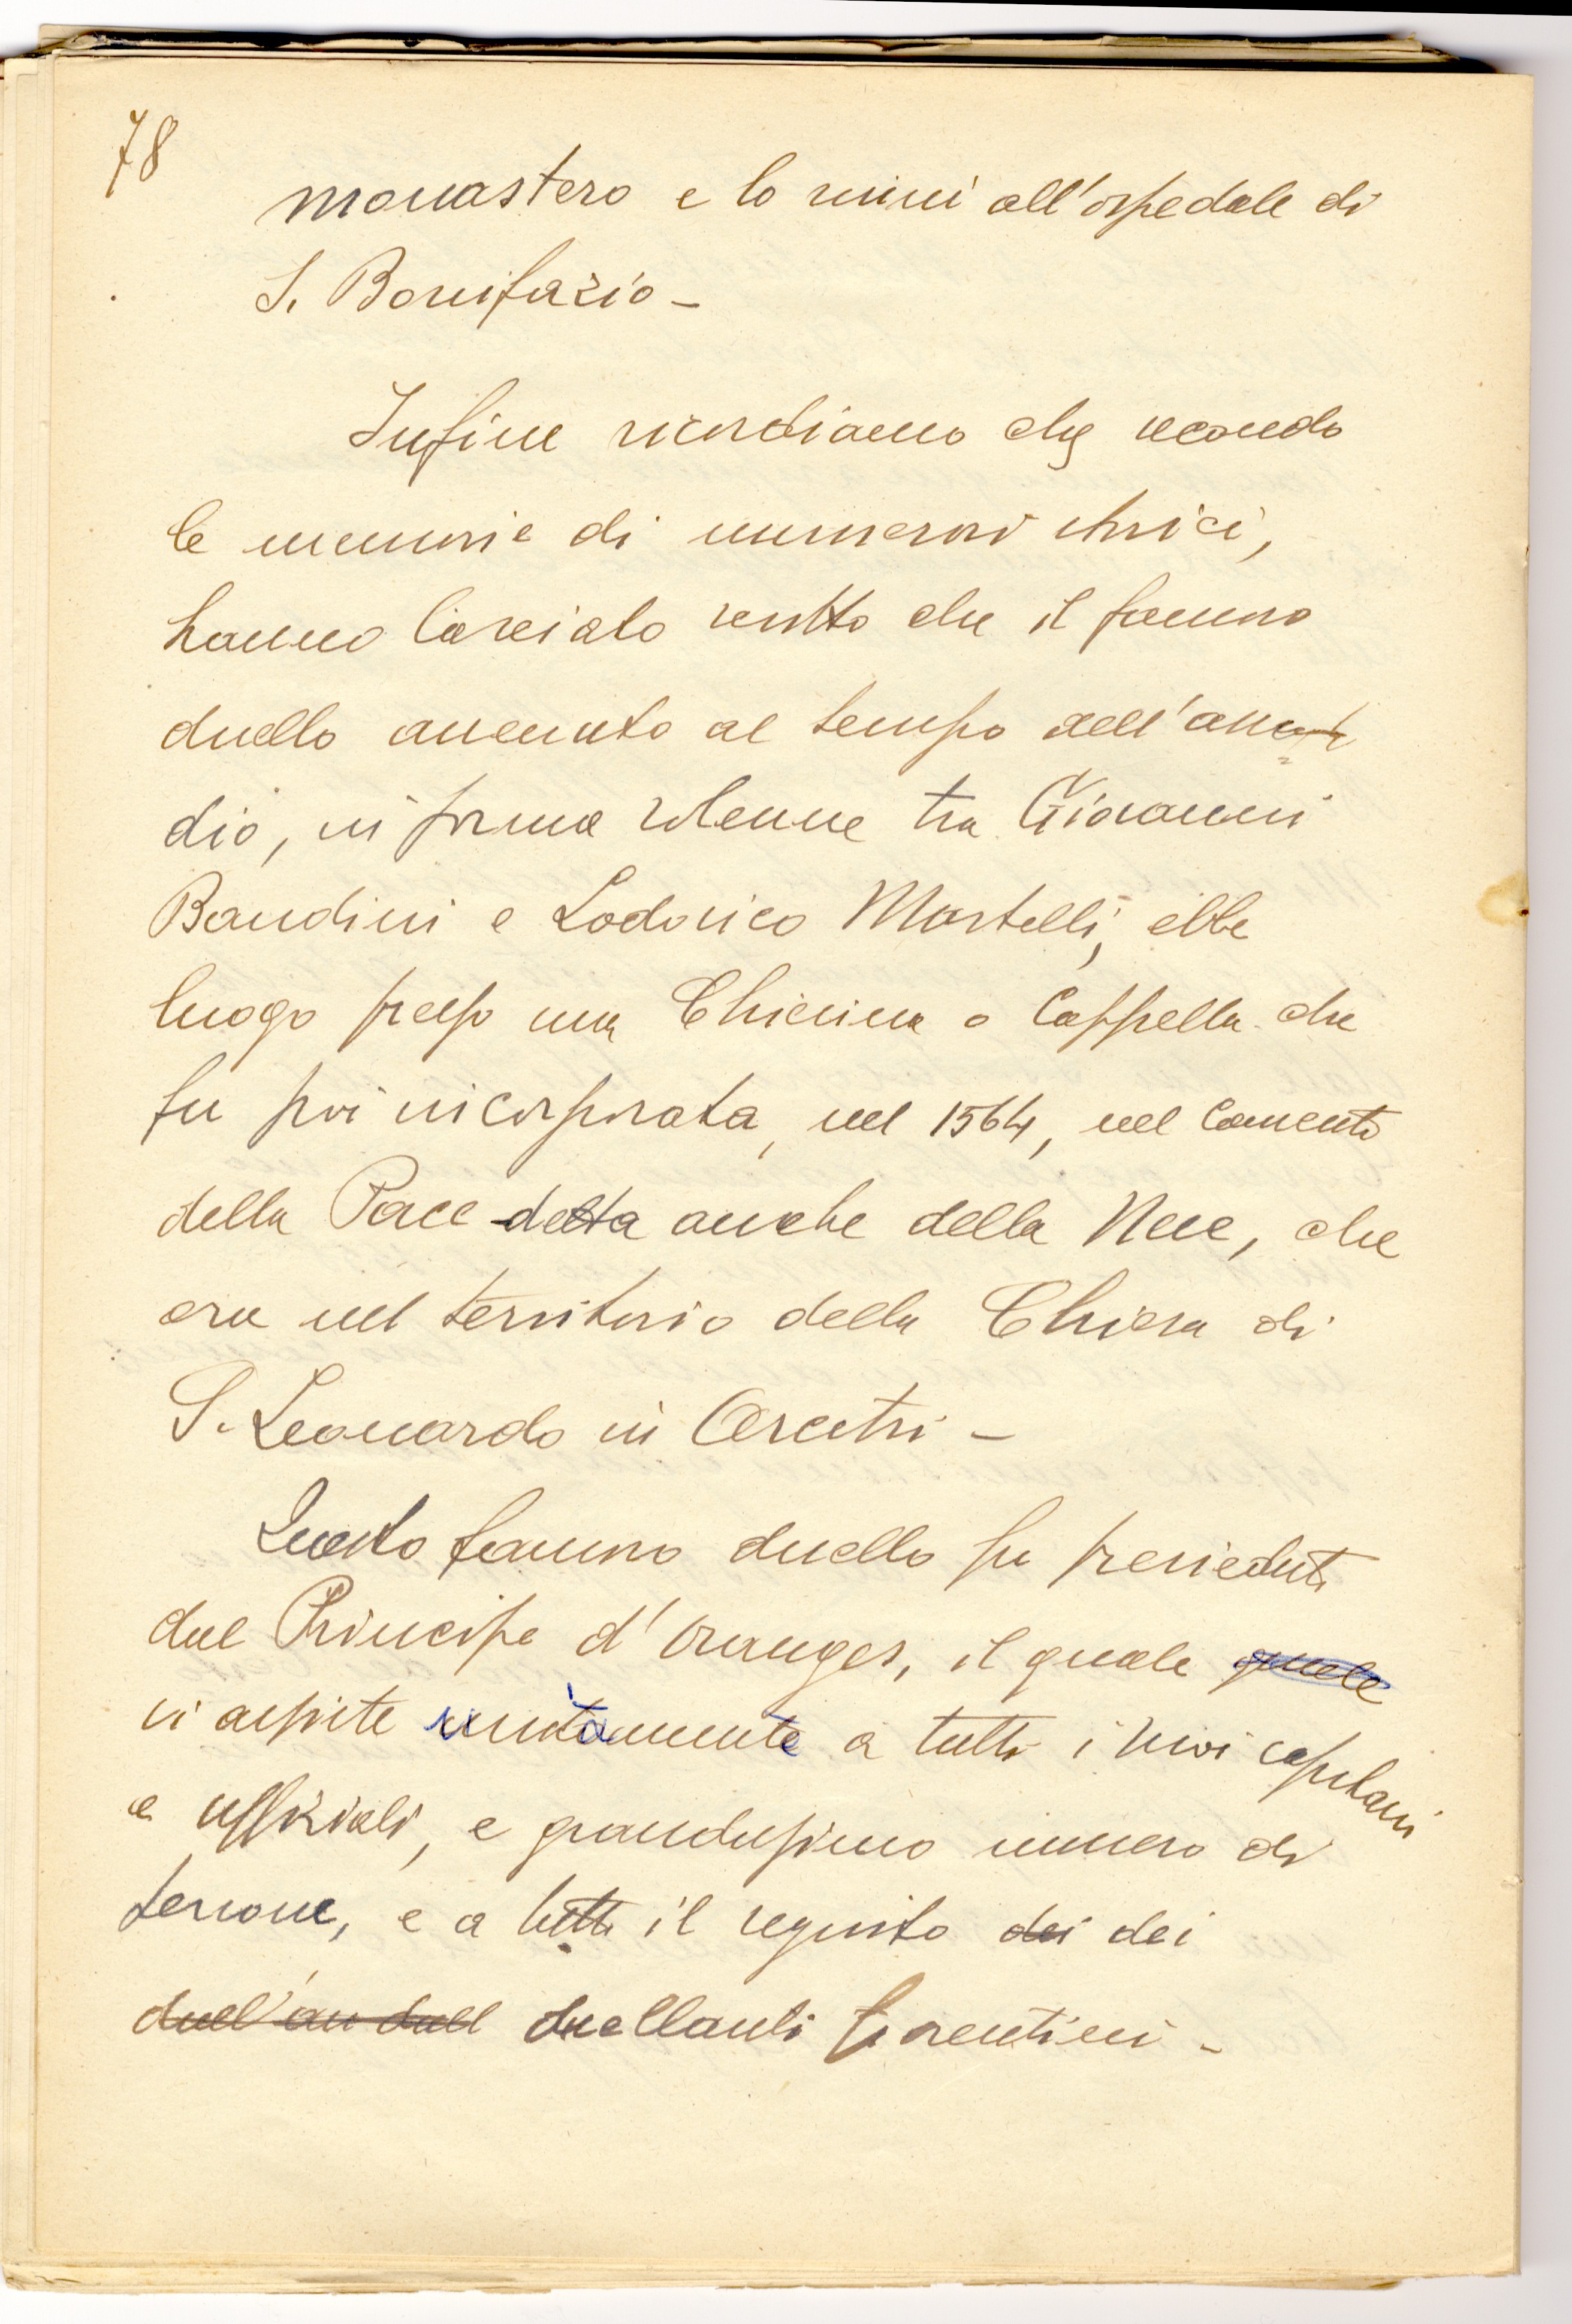 78
monastero e lo unì all'ospedale di
S. Bonifazio -
Infine ricordiamo che secondo
le memorie di numerosi storici,
hanno lasciato scritto che il famoso
duello avvenuto al tempo dell'asse
dio, in forma solenne tra Giovanni
Bandini e Lodovico Martelli, ebbe
luogo presso una Chiesina o Cappella che
fu poi incorporata, nel 1564, nel Convento
della Pace detta anche della Neve, che
era nel territorio della Chiesa di
S. Leonardo in Arcetri -
Questo famoso duello fu presieduto
dal Principe d'Oranges, il quale quale
vi assisté unitamente a tutti i suoi capitani
e uffiziali, e grandissimo numero di
persone, e a tutto il seguito dei dei
duellanti fiorentini -